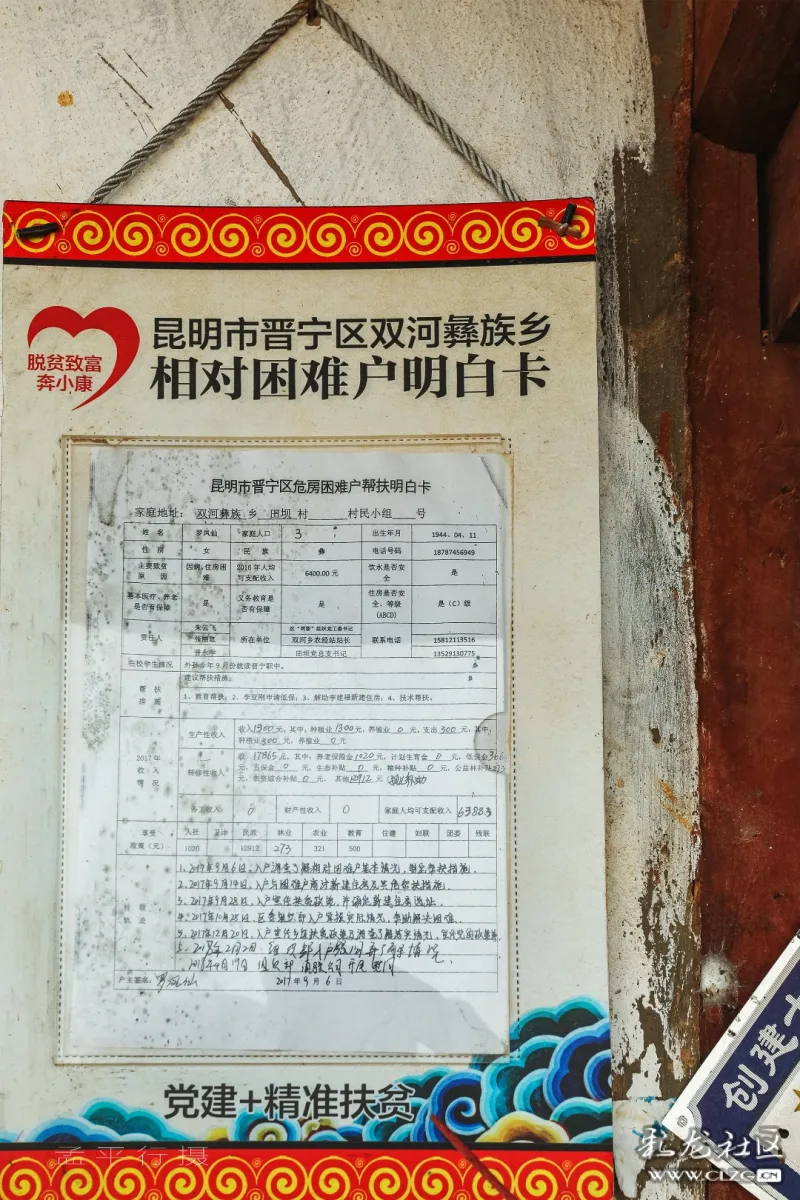 脱贫致富
奔小康
昆明市晋宁区双河彝族乡
相对困难户明白卡
昆明市晋宁区危房困难户帮扶明白卡
家庭地址: 双河彝族 乡 田坝 村 村民小组 号
姓 名 罗凤仙 家庭人口 3 出生年月 1944、04、11
性 别 女 民 族 彝 电话号码 18787456949
主要致贫原因 因病,住房困难 2016年人均可支配收入 6400.00元 饮水是否安全 是
基本医疗、养老是否有保障 是 义务教育是否有保障 是 住房是否安全、等级(ABCD) 是(C)级
责任人 所在单位 联系电话
双河乡农经站站长 15812113516
田坝党总支书记 13529130775
在校学生情况 外孙今年9月份就读晋宁职中。
帮扶措施 建议帮扶措施:
1、教育帮扶; 2、李亚刚申请低保; 3、解助李建福新建住房; 4、技术帮扶。
2017年收入情况
生产性收入 收入1300元,其中:种植业1300元,养殖业0元,支出300元,其中:
种植业300元,养殖业0元
转移性收入 收入17865元,其中:养老保险金1020元,计划生育金0元,低保金
元,五保金0元,生态补贴0元,粮种补贴0元,公益林补贴273
元,农资综合补贴0元,其他12912元
务工收入 0 财产性收入 0 家庭人均可支配收入 6388.3
享受政策(元) 人社 卫计 民政 林业 农业 教育 住建 妇联 团委 残联
1020 12912 273 321 500
1、2017年9月6日,入户调查了解相对困难户基本情况,制定帮扶措施。
2、2017年9月14日,入户与困难户商讨新建住房及其他帮扶措施。
3、2017年9月28日,入户宣传扶贫政策,并确定新建住房选址。
4、2017年10月25日,区委组织部入户掌握实际情况,帮助解决困难。
5、2017年12月20日,入户宣传
5、2018年2月2日
2018年4月19日
户主签名: 罗凤仙 2017年9月6日
党建+精准扶贫
孟平行摄
创建
彩龙社区
WWW.CLZG.CN